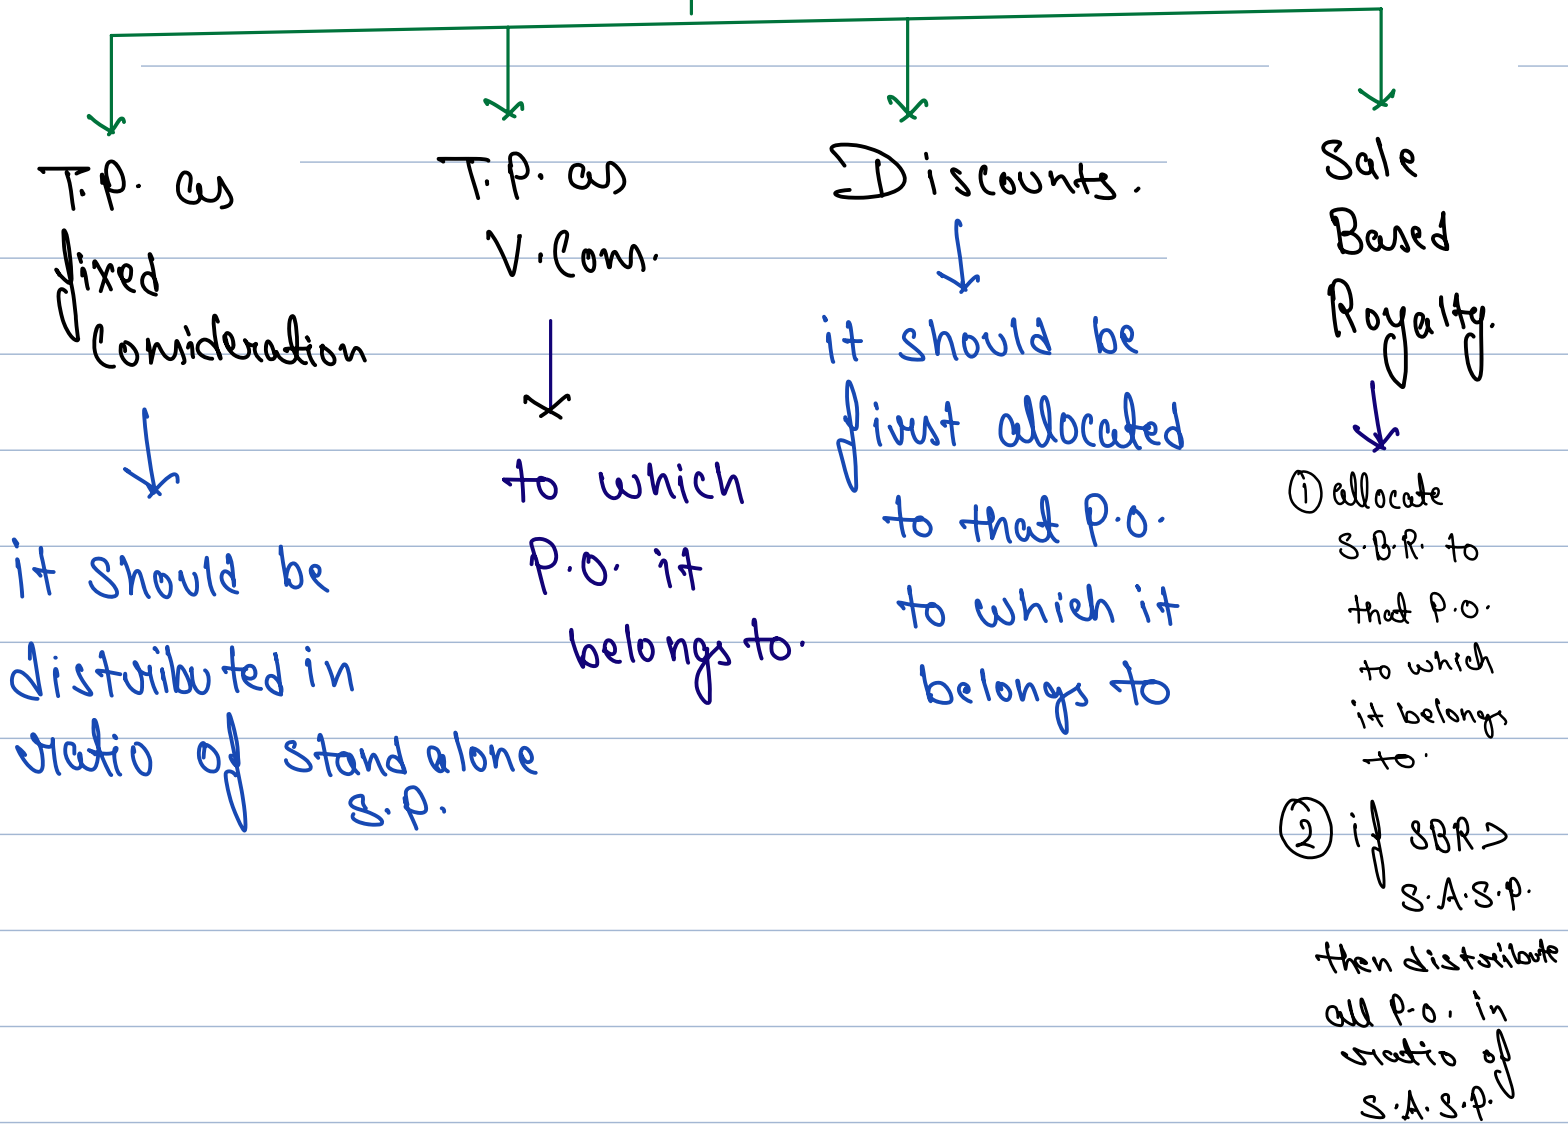 T.P. as
fixed
Consideration
it should be
distributed in
ratio of stand alone
S.P.
T.P. as
V.Con.
to which
P.O. it
belongs to.
Discounts.
it should be
first allocated
to that P.O.
to which it
belongs to
Sale
Based
Royalty.
① allocate
S.B.R. to
that P.O.
to which
it belongs
to.
② if SBR >
S.A.S.P.
then distribute
all P.O. in
ratio of
S.A.S.P.